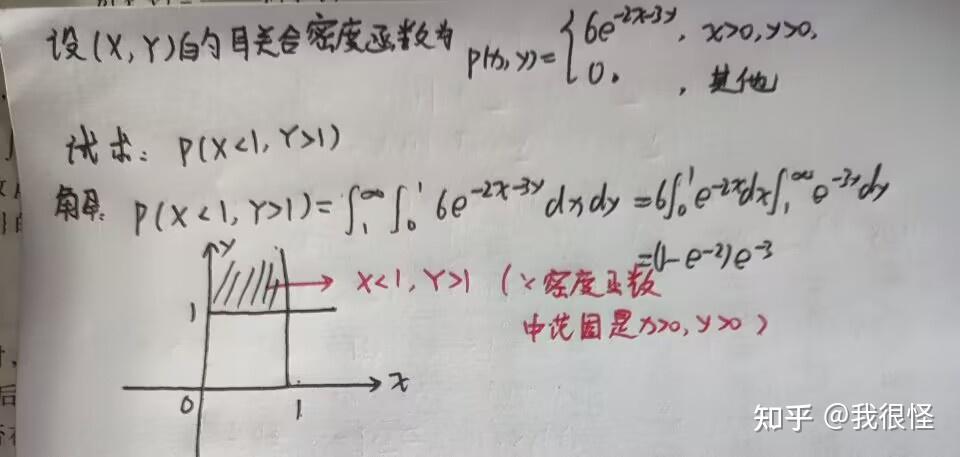 设(X,Y)的联合密度函数为 p(x,y)={6e^{-2x-3y}, x>0,y>0,
0. , 其他
试求: P(X<1,Y>1)
解: P(X<1,Y>1)=∫_1^∞∫_0^1 6e^{-2x-3y}dxdy=6∫_0^1 e^{-2x}dx∫_1^∞ e^{-3y}dy
=(1-e^{-2})e^{-3}
y
X<1,Y>1 (∵密度函数
中范围是x>0,y>0)
1
x
0
1
知乎 @我很怪